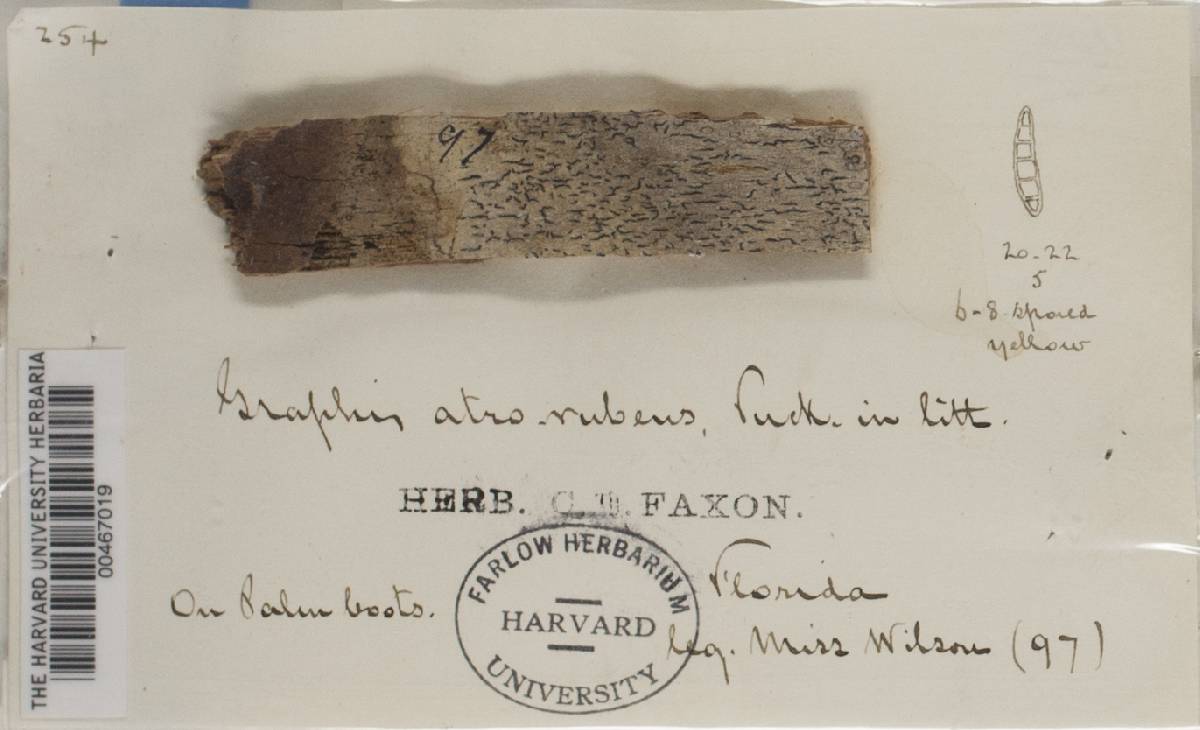 254
97
20-22
5
6-8 spored
yellow
Graphis atro-rubens, Tuck. in litt.
HERB. C. E. FAXON.
FARLOW HERBARIUM
HARVARD
UNIVERSITY
On Palm boots.
Florida
leg. Miss Wilson (97)
THE HARVARD UNIVERSITY HERBARIA
00467019